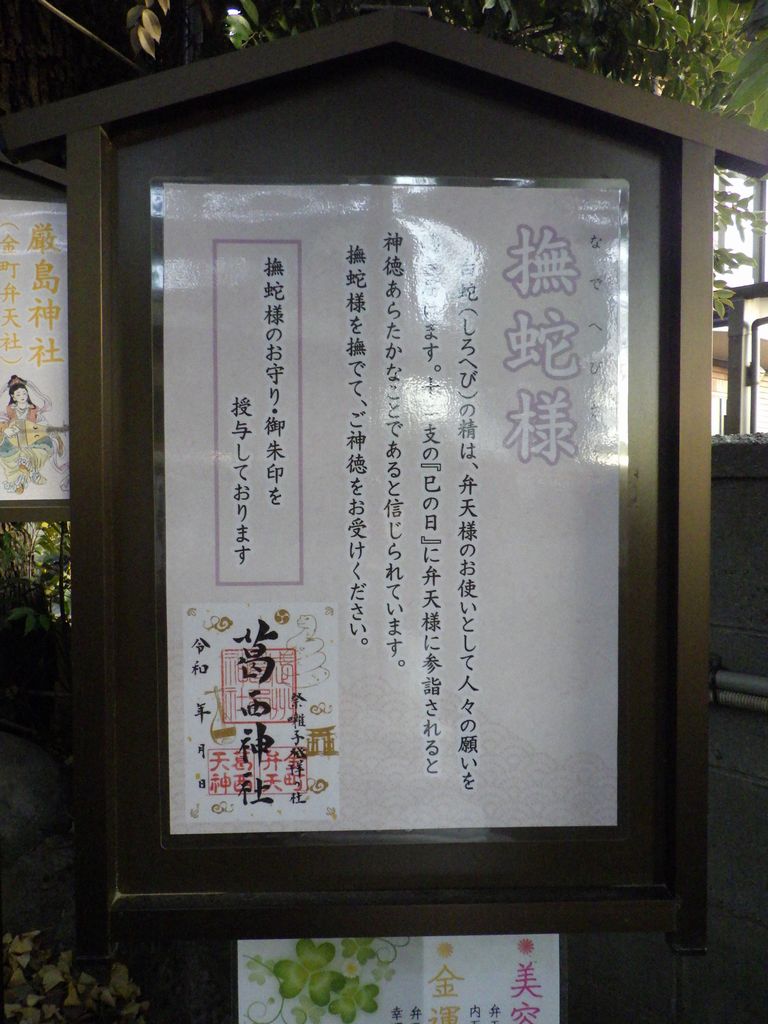 なでへびさ
撫蛇様
白蛇(しろへび)の精は、弁天様のお使いとして人々の願いを
ます。十二支の『巳の日』に弁天様に参詣されると
神徳あらたかなことであると信じられています。
撫蛇様を撫でて、ご神徳をお受けください。
撫蛇様のお守り・御朱印を
授与しております
祭囃子発祥の社
葛西神社
金町
弁天
葛西
天神
令和 年 月 日
厳島神社
(金町弁天社)
美容
金運